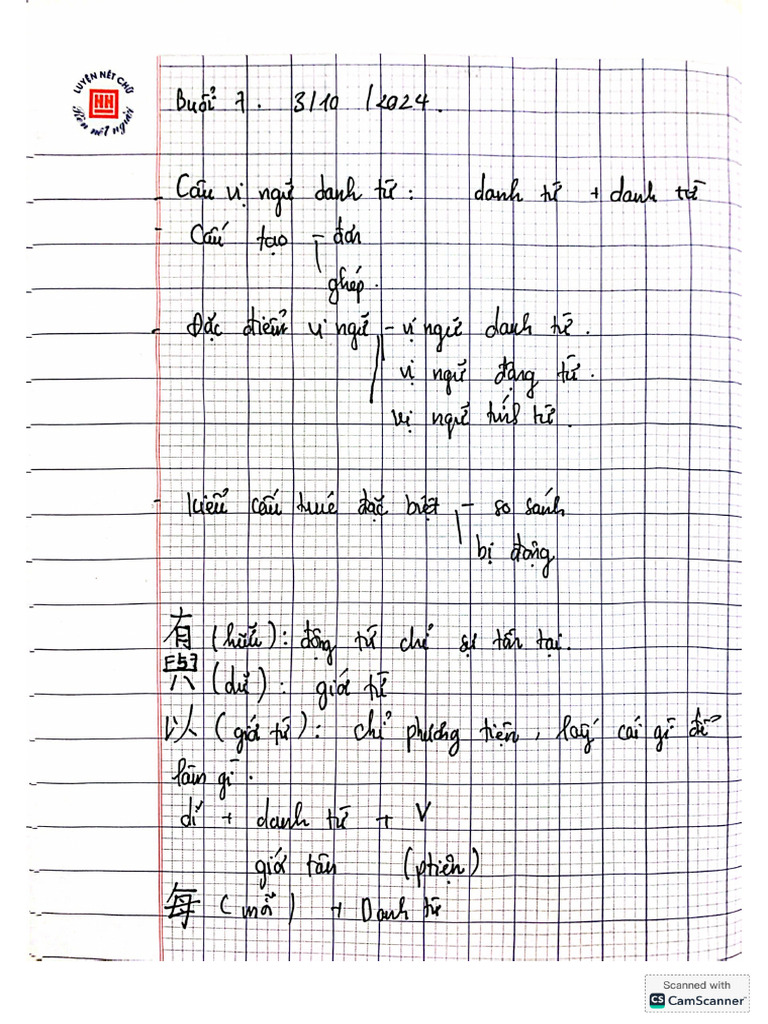 LUYỆN NÉT CHỮ
HH
Rèn nết người
Buổi 7. 3/10 /2024.
- Câu vị ngữ danh từ: danh từ + danh từ
- Cấu tạo - đơn
ghép.
- Đặc điểm vị ngữ - vị ngữ danh từ.
vị ngữ động từ.
vị ngữ tính từ.
- Kiểu cấu trúc đặc biệt - so sánh
bị động
有 (hữu): động từ chỉ sự tồn tại.
與 (dữ): giới từ
以 (giới từ): chỉ phương tiện, lấy cái gì để
làm gì.
dĩ + danh từ + V
giới tân (ptiện)
每 (mỗi) + Danh từ
Scanned with
CS CamScanner